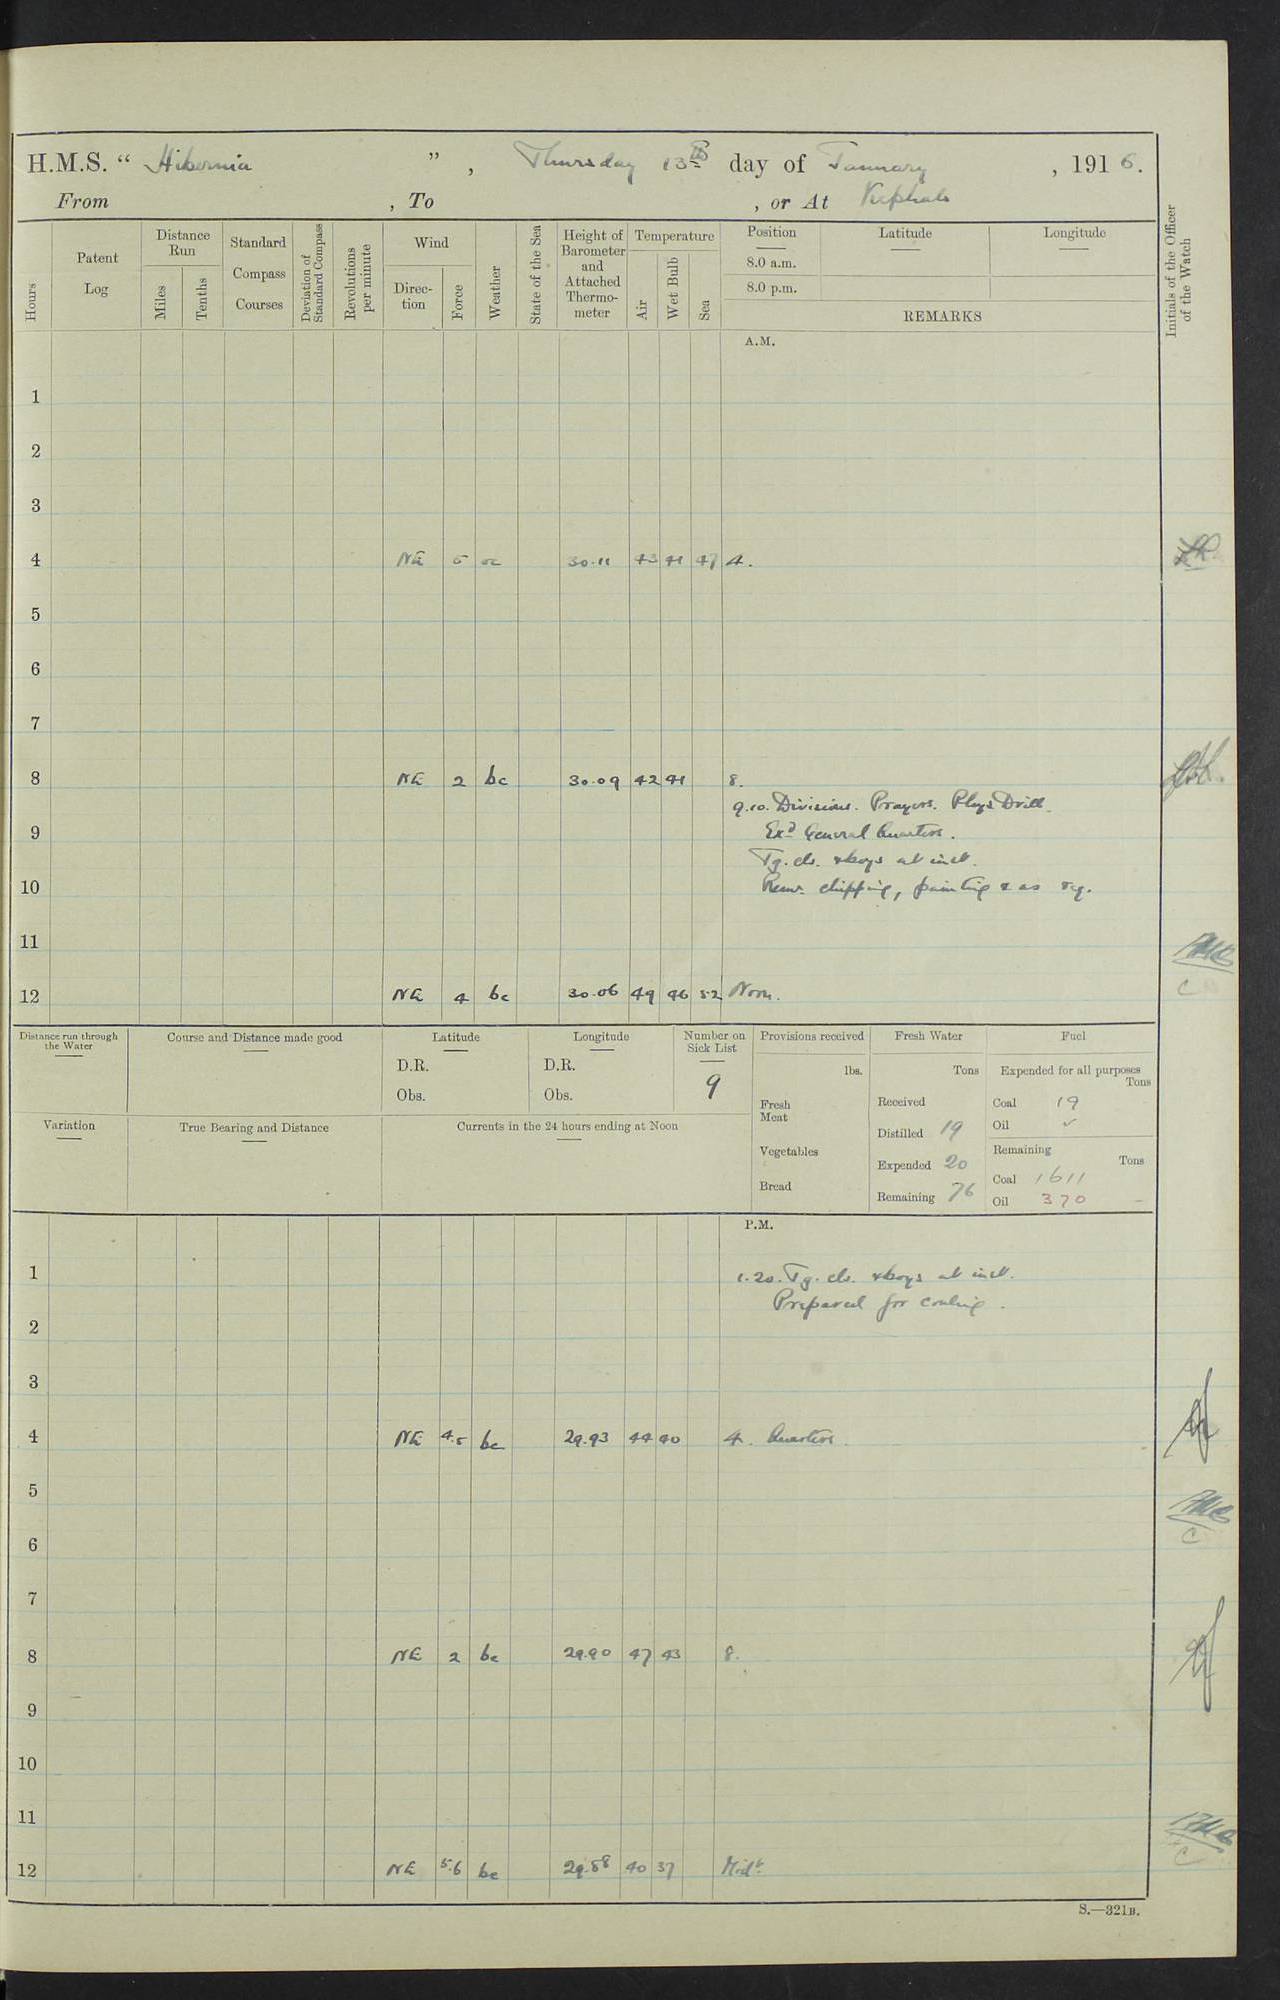 H.M.S. “ Hibernia ” , Thursday 13th day of January , 1916.
From , To , or At Kephalo
Hours
Patent Log
Distance Run
Miles
Tenths
Standard Compass Courses
Deviation of Standard Compass
Revolutions per minute
Wind
Direction
Force
Weather
State of the Sea
Height of Barometer and Attached Thermometer
Temperature
Air
Wet Bulb
Sea
Position
8.0 a.m.
8.0 p.m.
Latitude
Longitude
REMARKS
Initials of the Officer of the Watch
A.M.
1
2
3
4 NE 5 oc 30.11 43 41 47 4.
5
6
7
8 NE 2 bc 30.09 42 41 8.
9.10. Divisions. Prayers. Phys Drill.
9 Exd General Quarters.
Tg. cls. & boys at inst.
10 Remr. chipping, painting & as rq.
11
12 NE 4 bc 30.06 49 46 52 Noon.
Distance run through the Water
Course and Distance made good
Latitude
D.R.
Obs.
Longitude
D.R.
Obs.
Number on Sick List
9
Provisions received
lbs.
Fresh Meat
Vegetables
Bread
Fresh Water
Tons
Received
Distilled 19
Expended 20
Remaining 76
Fuel
Expended for all purposes
Tons
Coal 19
Oil ✓
Remaining
Tons
Coal 1611
Oil 370 –
Variation
True Bearing and Distance
Currents in the 24 hours ending at Noon
P.M.
1 1.20. Tg. cls. & boys at inst.
Prepared for coaling.
2
3
4 NE 4.5 bc 29.93 44 40 4. Quarters.
5
6
7
8 NE 2 bc 29.90 47 43 8.
9
10
11
12 NE 5.6 bc 29.88 40 37 Midt.
S.—321B.